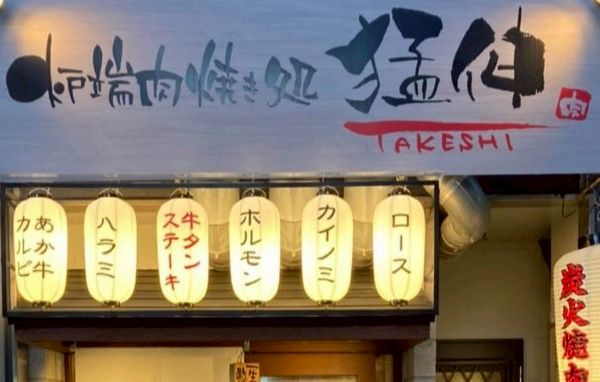 炉端肉焼き処 猛伸
肉
TAKESHI
あか牛
カルビ
ハラミ
牛タン
ステーキ
ホルモン
カイノミ
ロース
炭火焼肉